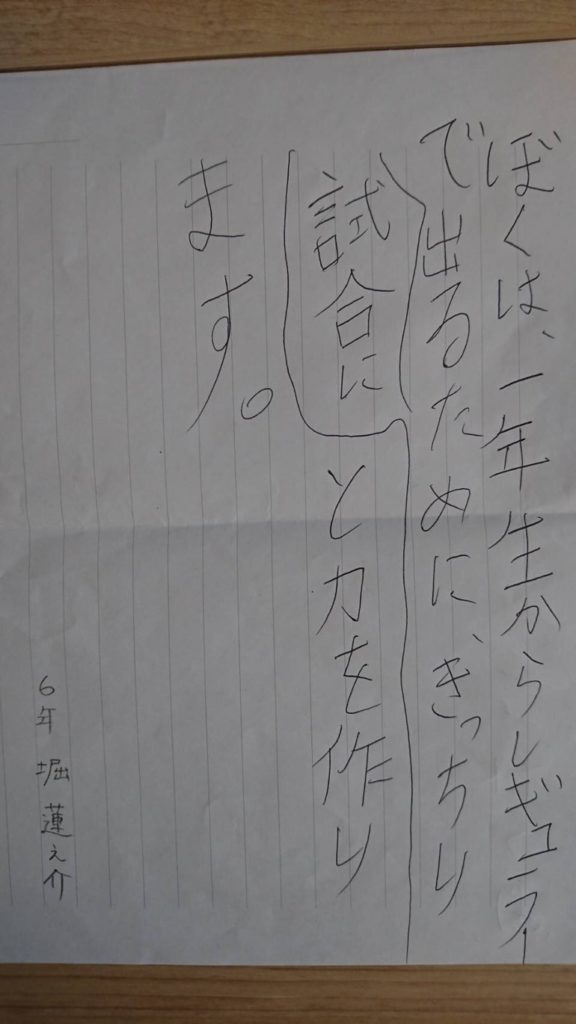 ぼくは、一年生からレギュラー
で出るために、きっちり
試合に と力を作り
ます。
6年 堀 蓮之介